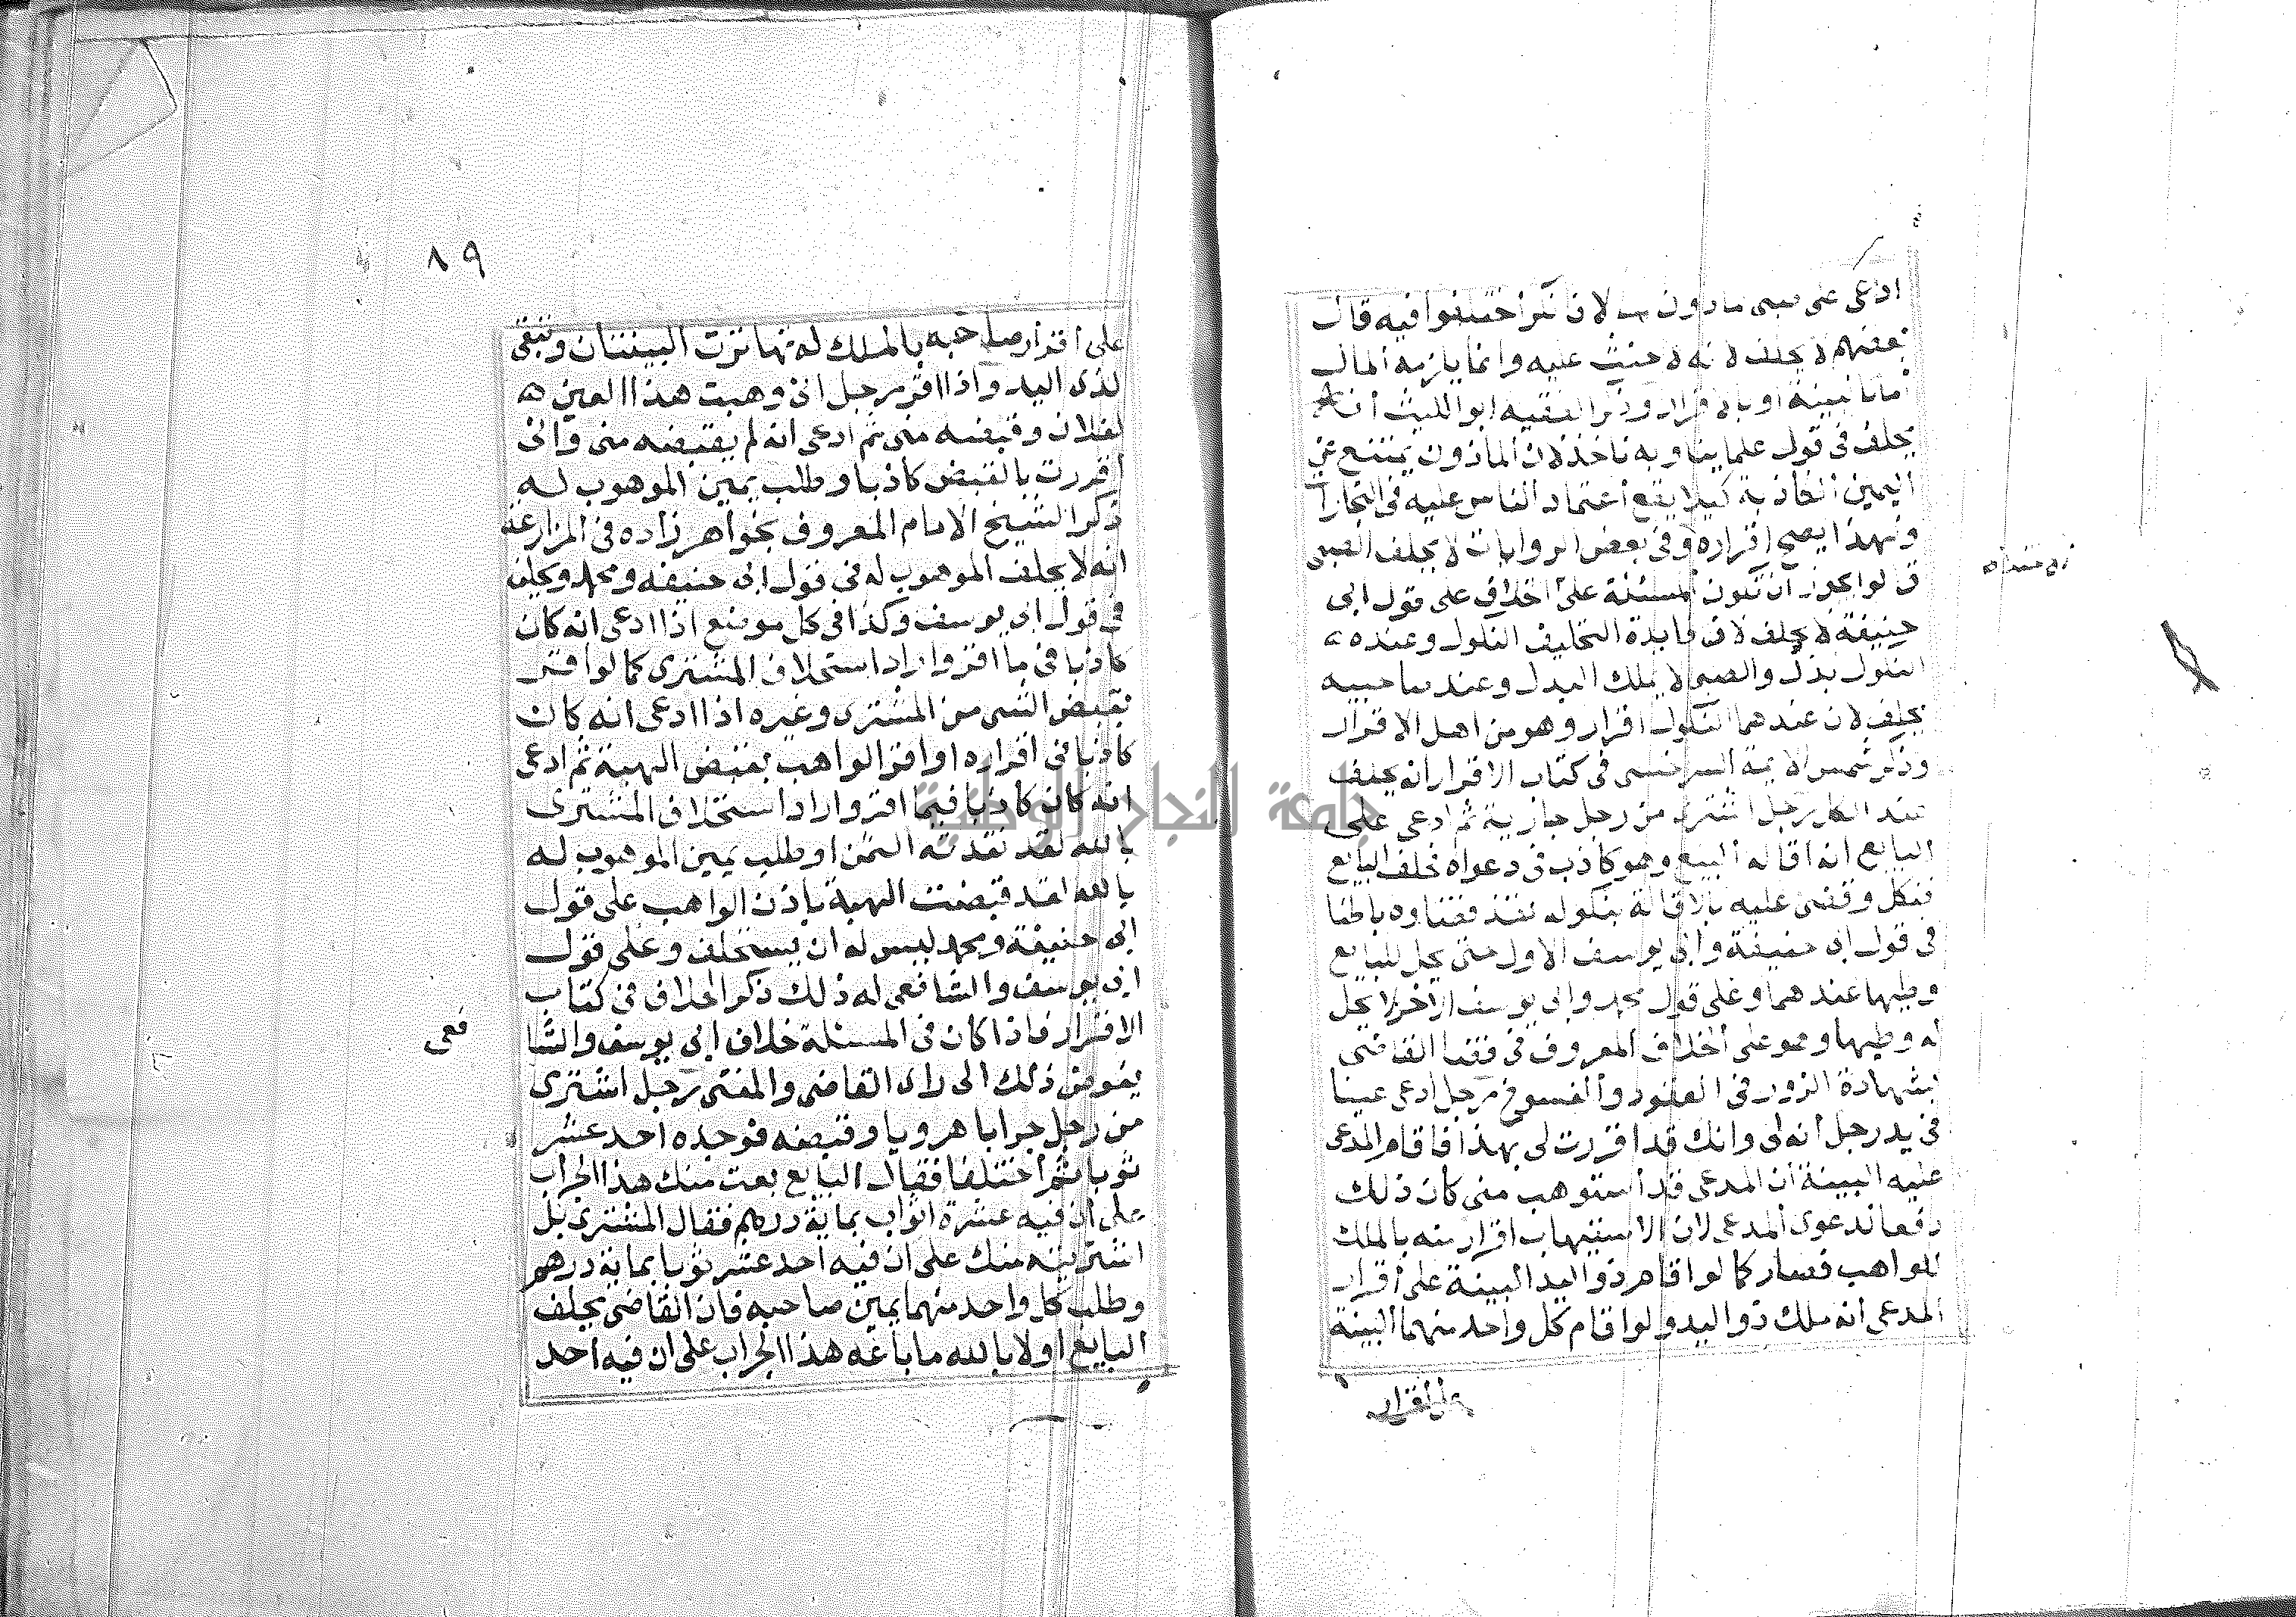 ادعى على صبى مأذون لان ذكر اختلفوا فيه قال
بعضهم لا يحلف لانه لا حنث عليه وانما يلزمه المال
اما بالبينة او بالاقرار وذكر الفقيه ابو الليث انه
يحلف فى قول علماينا وبه ناخذ لان المأذون يمتنع عن
اليمين الكاذبة كيلا يقع اعتماد الناس عليه فى التجارا
ولهذا يصح اقراره وفى بعض الروايات لا يحلف الصبى
قالوا يجوز ان تكون المسئلة على الخلاف على قول ابى
حنيفة لا يحلف لان فايدة التحليف النكول وعنده
النكول بذل والصبى لا يملك البدل وعند صاحبيه
يحلف لان عندهما النكول اقرار وهو من اهل الاقرار
وذكر شمس الايمة السرخسى فى كتاب الاقرار انه يحلف
عند الكل رجل اشترى من رجل جارية ثم ادعى على
البايع انه اقاله البيع وهو كاذب فى دعواه فحلف البايع
فنكل وقضى عليه بالاقالة بنكوله نفذ قضاوه باطنا
فى قول ابى حنيفة وابى يوسف الاول حتى يحل للبايع
وطيها عندهما وعلى قول محمد وابى يوسف الاخر لا يحل
له وطيها وهو على الخلاف المعروف فى قضا القاضى
بشهادة الزور فى العقود والفسوخ رجل ادعى عينا
فى يد رجل انه لى وانك قد اقررت لى بهذا فاقام المدعى
عليه البينة ان المدعى قد استوهب منى كان ذلك
دفعا لدعوى المدعى لان الاستيهاب اقرار منه بالملك
للواهب فصار كما لو اقام ذو اليد البينة على اقرار
المدعى انه ملك ذو اليد ولو اقام كل واحد منهما البينة
على اقرار
٨٩
على اقرار صاحبه بالملك له تهاترت البينتان وتبقى
لذى اليد واذا اقر رجل انى وهبت هذا العين
لفلان وقبضه منى ثم ادعى انه لم يقبضه منى وانى
اقررت بالقبض كاذبا وطلب يمين الموهوب له
ذكر الشيخ الامام المعروف بخواهر زاده فى المزارعة
انه لا يحلف الموهوب له فى قول ابى حنيفه ومحمد ويحلف
فى قول ابى يوسف وكذا فى كل موضع اذا ادعى انه كان
كاذبا فى ما اقر واراد استحلاف المشترى كما لو اقر
بقبض الشى من المشترى وغيره اذا ادعى انه كان
كاذبا فى اقراره او اقر الواهب بقبض الهبة ثم ادعى
انه كان كاذبا فيما اقر واراد استحلاف المشترى
بالله لقد نقدته الثمن او طلب يمين الموهوب له
بالله لقد قبضت الهبة باذن الواهب على قول
ابى حنيفة ومحمد ليس له ان يستحلف وعلى قول
ابى يوسف والشافعى له ذلك ذكر الخلاف فى كتاب
الاقرار فاذا كان فى المسئلة خلاف ابى يوسف والشا
فعى
يفوض ذلك الى راى القاضى والمفتى رجل اشترى
من رجل جرابا هرويا وقبضه فوجده احد عشر
ثوبا ثم اختلفا فقال البايع بعت منك هذا الجراب
على ان فيه عشرة اثواب بماية درهم فقال المشترى بل
اشتريته منك على ان فيه احد عشر ثوبا بماية درهم
وطلب كل واحد منهما يمين صاحبه فان القاضى يحلف
البايع اولا بالله ما باعه هذا الجراب على ان فيه احد
جامعة النجاح الوطنية